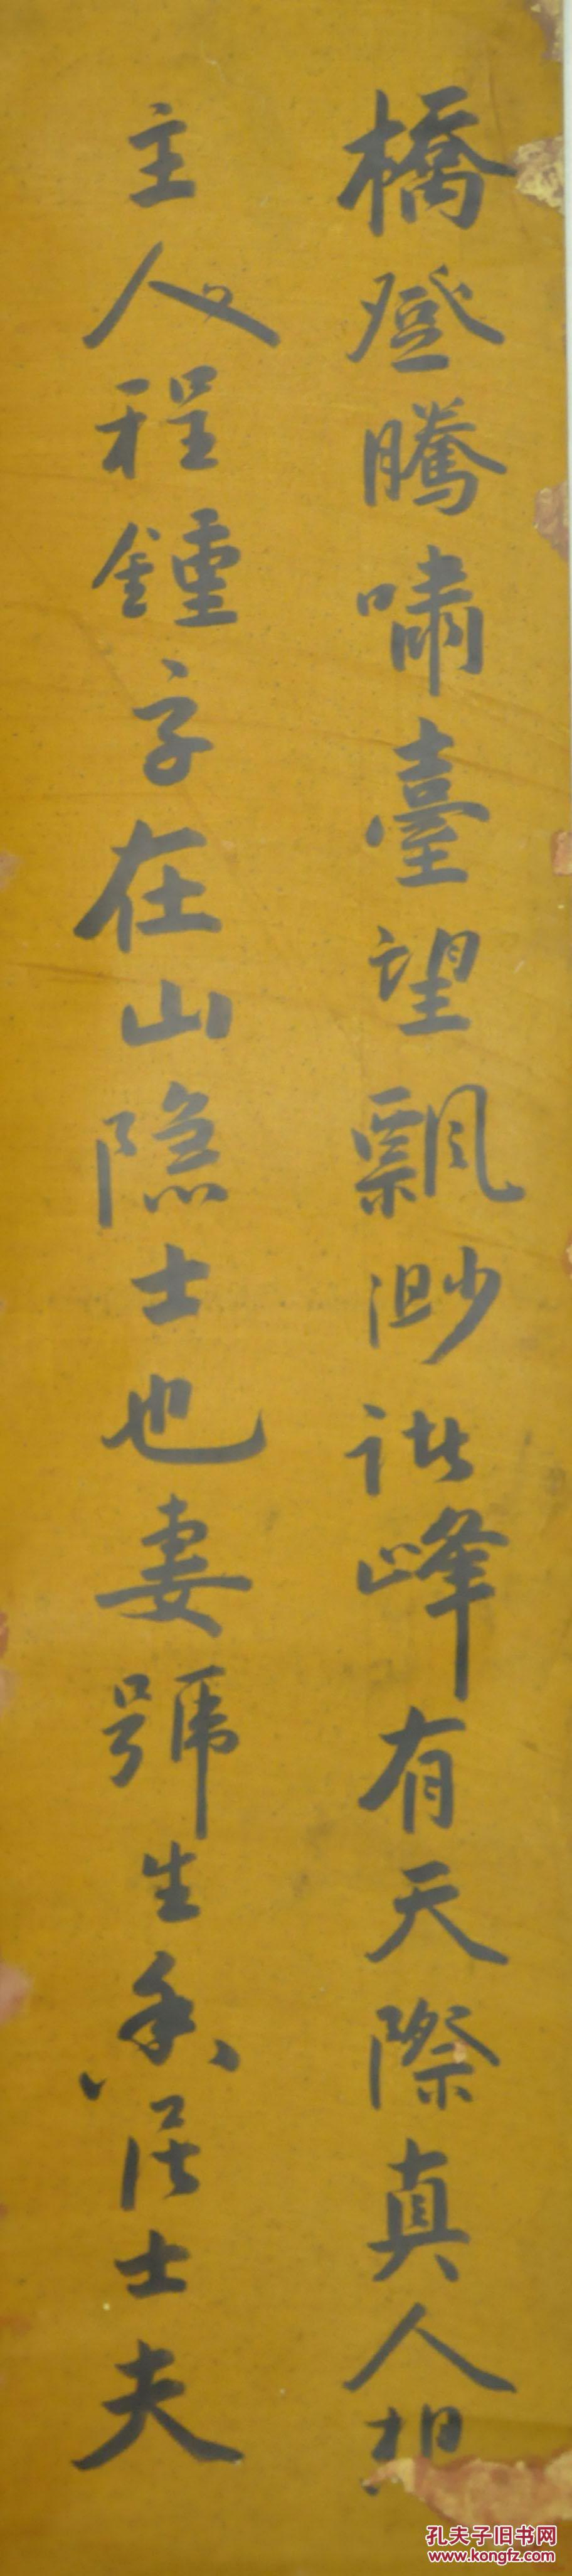 橋登騰嘯臺望飄渺諸峰有天際真人想
主人程鍾字在山隱士也妻號生香居士夫
孔夫子旧书网
www.kongfz.com